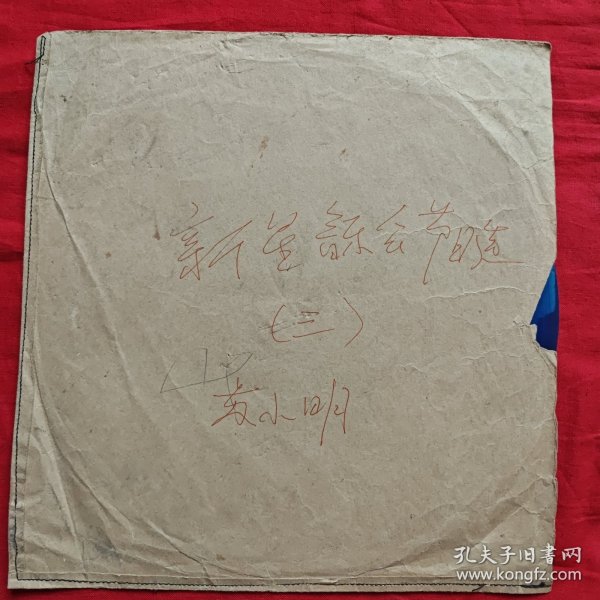 新星音乐会节选
(三)
苏小明
孔夫子旧书网
www.kongfz.com